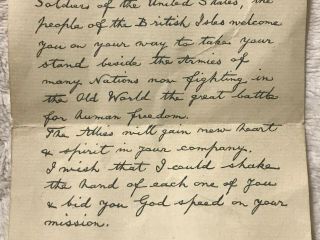 Soldiers of the United States, the
people of the British Isles welcome
you on your way to take your
stand beside the Armies of
many Nations now fighting in
the Old World the great battle
for human freedom.
The Allies will gain new heart
& spirit in your company.
I wish that I could shake
the hand of each one of you
& bid you God speed on your
mission.